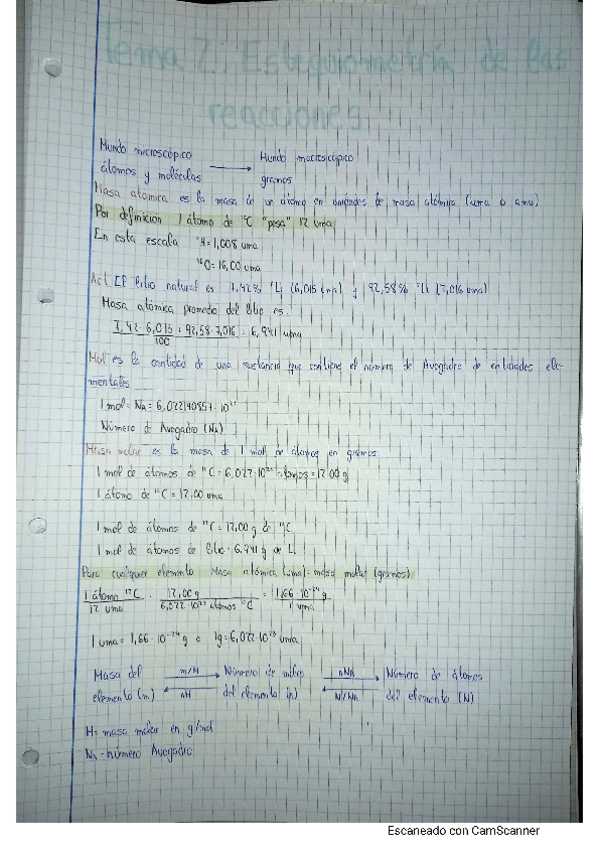 Tema 2: Estequiometría de las
reacciones
Mundo microscópico → Mundo macroscópico
átomos y moléculas gramos
Masa atómica es la masa de un átomo en unidades de masa atómica (uma o amu)
Por definición 1 átomo de ¹²C "pesa" 12 uma
En esta escala ¹H = 1,008 uma
¹⁶O = 16,00 uma
Act El litio natural es 7,42% ⁶Li (6,015 uma) y 92,58% ⁷Li (7,016 uma)
Masa atómica promedio del litio es:
7,42 · 6,015 + 92,58 · 7,016 / 100 = 6,941 uma
Mol es la cantidad de una sustancia que contiene el número de Avogadro de entidades ele-
mentales
1 mol = NA = 6,022140857 · 10²³
Número de Avogadro (NA)
Masa molar es la masa de 1 mol de átomos en gramos
1 mol de átomos de ¹²C = 6,022 · 10²³ átomos = 12,00 g
1 átomo de ¹²C = 12,00 uma
1 mol de átomos de ¹²C = 12,00 g de ¹²C
1 mol de átomos de litio = 6,941 g de Li
Para cualquier elemento Masa atómica (uma) = masa molar (gramos)
1 átomo ¹²C / 12 uma · 12,00 g / 6,022 · 10²³ átomos ¹²C = 1,66 · 10⁻²⁴ g / 1 uma
1 uma = 1,66 · 10⁻²⁴ g o 1g = 6,022 · 10²³ uma
Masa del m/M → Número de moles nNA → Número de átomos
elemento (m) ← nM del elemento (n) ← N/NA del elemento (N)
M = masa molar en g/mol
NA = número Avogadro
Escaneado con CamScanner